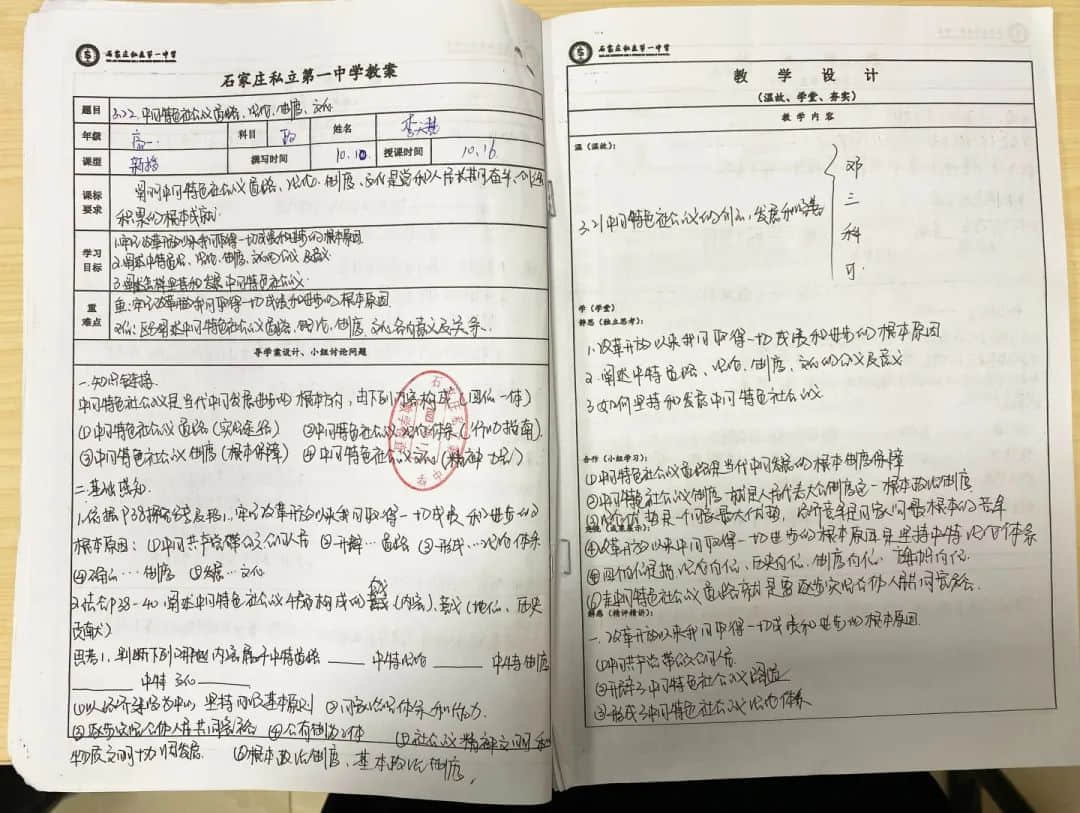 石家庄私立第一中学
石家庄私立第一中学教案
题目 3.2.2 中国特色社会主义道路、理论、制度、文化
年级 高一 科目 政 姓名 李
课型 新授 撰写时间 10.10 授课时间 10.16
课标要求 阐明中国特色社会主义道路、理论、制度、文化是党和人民长期奋斗、
积累的根本成就
学习目标 1.牢记改革开放以来我们取得一切成绩和进步的根本原因
2.阐述中特道路、理论、制度、文化的含义及意义
3.阐述怎样坚持和发展中国特色社会主义
重难点 重:牢记改革开放以来我们取得一切成绩和进步的根本原因
难:区分阐述中国特色社会主义道路、理论、制度、文化各自意义及关系.
导学案设计、小组讨论问题
一.知识链接.
中国特色社会主义是当代中国发展进步的根本方向,由下列内容构成(四位一体)
①中国特色社会主义道路(实现途径) ②中国特色社会主义理论体系(行动指南)
③中国特色社会主义制度(根本保障) ④中国特色社会主义文化(精神力量)
二.基础感知.
1.依据P38探究与分享,牢记改革开放以来我们取得一切成绩和进步的
根本原因: ①中国共产党带领全国人民 ②开辟…道路 ③形成…理论体系
④确立…制度 ⑤发展…文化
2.结合P38-40,阐述中国特色社会主义4部构成的含义(内容)、意义(地位、历史
贡献)
思考1.判断下列哪些内容属于中特道路 ____ 中特理论 ____ 中特制度
____ 中特文化 ____
①以经济建设为中心,坚持四项基本原则 ②国家治理体系和治理能力
③逐步实现全体人民共同富裕 ④公有制为主体 ⑤社会主义精神文明和
物质文明协调发展. ⑥根本政治制度、基本政治制度.
石家庄私立第一中学
教 学 设 计
(温故、学堂、夯实)
教 学 内 容
温(温故):
3.2.1中国特色社会主义的创立、发展和完善
邓
三
科
习
学(学堂)
群思(独立思考):
1.改革开放以来我们取得一切成绩和进步的根本原因
2.阐述中特道路、理论、制度、文化的含义及意义
3.如何坚持和发展中国特色社会主义
合作(小组学习):
①中国特色社会主义道路是当代中国发展的根本制度保障
②中国特色社会主义制度就是人民代表大会制度这一根本政治制度
(成果展示):
④改革开放以来中国取得一切进步的根本原因是坚持中特理论体系
⑤四个自信是指,理论自信、历史自信、制度自信、道路自信.
⑥走中国特色社会主义道路就是要逐步实现全体人民共同富裕.
群思(精评精讲):
一.改革开放以来我们取得一切成绩和进步的根本原因
①中国共产党带领全国人民.
②开辟了中国特色社会主义道路
③形成了中国特色社会主义理论体系